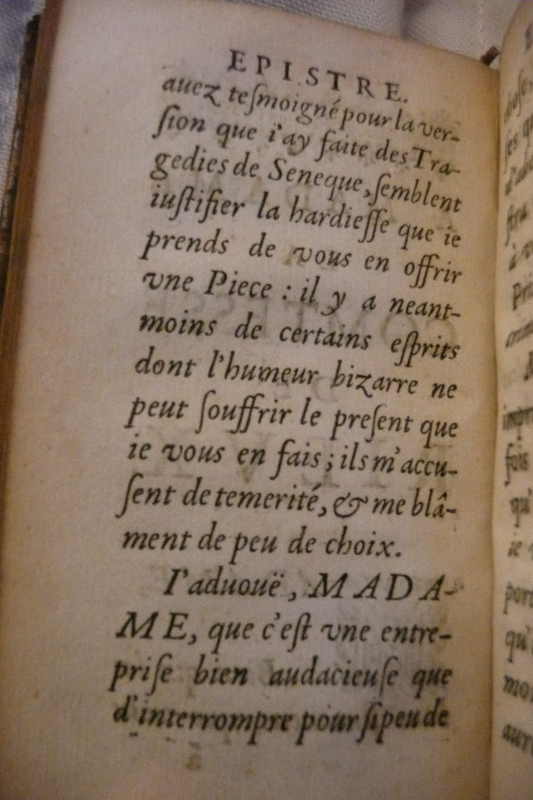 EPISTRE.
auez teſmoigné pour la ver-
ſion que i'ay faite des Tra-
gedies de Seneque, ſemblent
iuſtifier la hardieſſe que ie
prends de vous en offrir
vne Piece : il y a neant-
moins de certains eſprits
dont l'humeur bizarre ne
peut ſouffrir le preſent que
ie vous en fais ; ils m'accu-
ſent de temerité, & me blâ-
ment de peu de choix.
I'aduouë, MADA-
ME, que c'eſt vne entre-
priſe bien audacieuſe que
d'interrompre pour ſi peu de